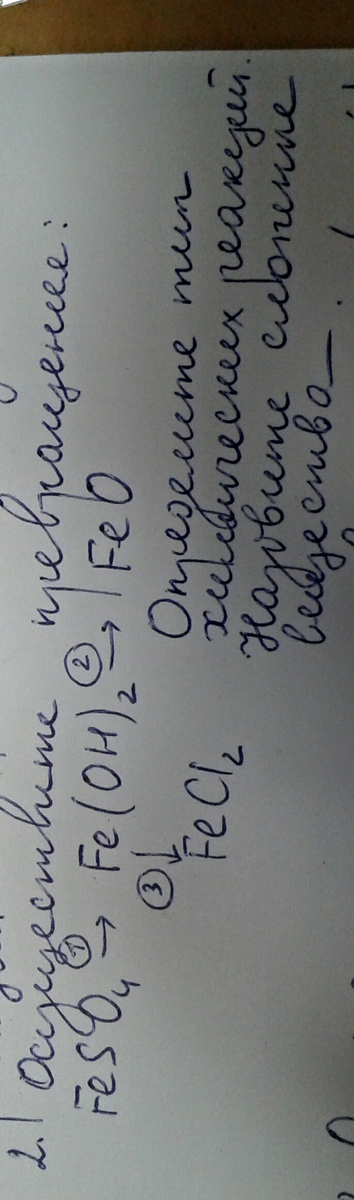 2.) Осуществите превращения:
FeSO₄ ①→ Fe(OH)₂ ②→ FeO
③↓
FeCl₂
Определите тип
химических реакций.
Назовите сложные
вещества.